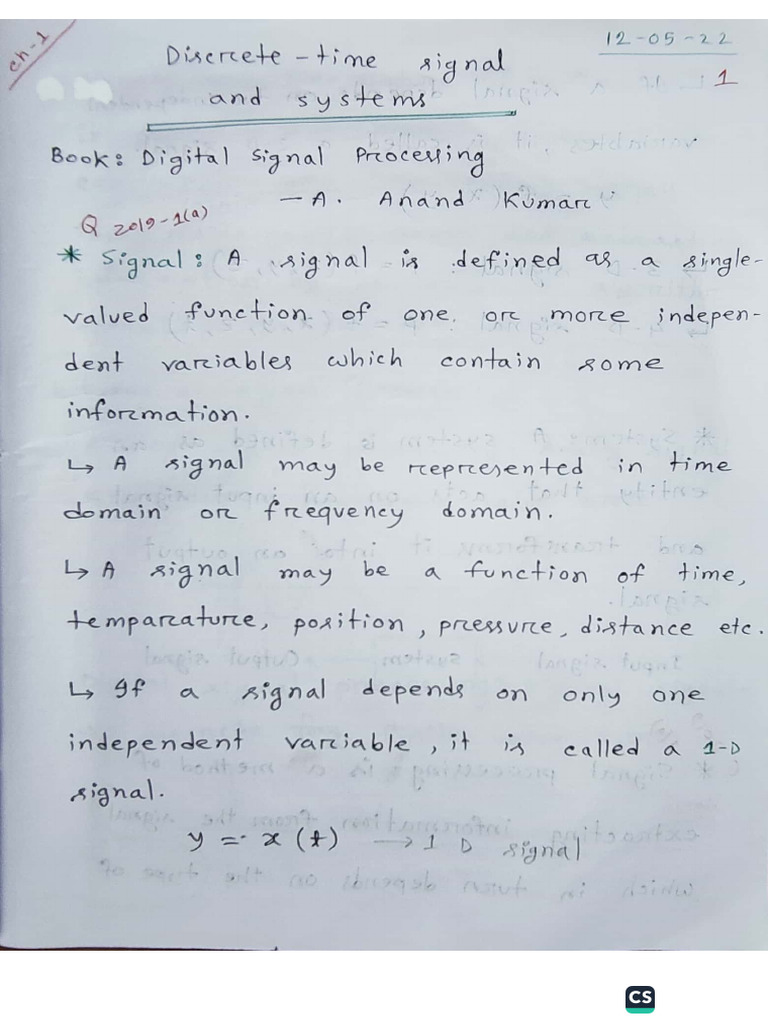 ch-1
12-05-22
1
Discrete-time signal
and systems
Book: Digital Signal Processing
- A. Anand Kumar
Q 2019-1(a)
* Signal: A signal is defined as a single-
valued function of one or more indepen-
dent variables which contain some
information.
↳ A signal may be represented in time
domain or frequency domain.
↳ A signal may be a function of time,
temparature, position, pressure, distance etc.
↳ If a signal depends on only one
independent variable, it is called a 1-D
signal.
y = x(t) → 1 D signal
CS